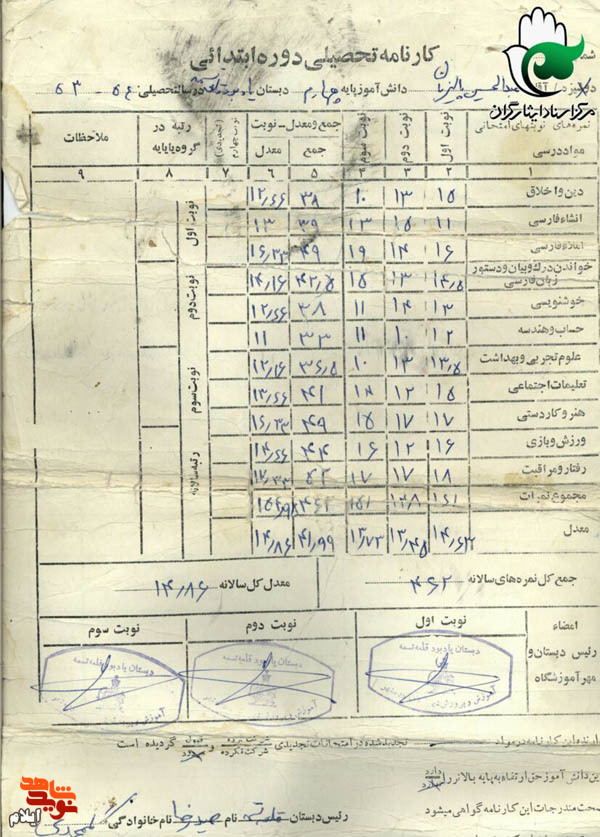 کارنامه تحصیلی دوره ابتدائی
دانش آموز پایه چهارم دبستان در سال تحصیلی ۶۴ - ۶۳
مرکز اسناد ایثارگران
نمره های نوبتهای امتحانی
نوبت اول نوبت دوم نوبت سوم جمع و معدل ۰ نوبت نوبت چهارم (تجدیدی) رتبه در گروه یا پایه ملاحظات
مواد درسی جمع معدل
۱ ۲ ۳ ۴ ۵ ۶ ۷ ۸ ۹
دین و اخلاق ۱۵ ۱۳ ۱۰ ۳۸ ۱۲/۶۶
انشاء فارسی ۱۱ ۱۵ ۱۳ ۳۹ ۱۳
املاء فارسی ۱۶ ۱۴ ۱۹ ۴۹ ۱۶/۳۳
خواندن درک و بیان و دستور زبان فارسی ۱۴/۵ ۱۳ ۱۵ ۴۲/۵ ۱۴/۱۶
خوشنویسی ۱۳ ۱۴ ۱۱ ۳۸ ۱۲/۶۶
حساب و هندسه ۱۲ ۱۰ ۱۱ ۳۳ ۱۱
علوم تجربی و بهداشت ۱۳/۵ ۱۳ ۱۰ ۳۶/۵ ۱۲/۱۶
تعلیمات اجتماعی ۱۵ ۱۲ ۱۴ ۴۱ ۱۳/۶۶
هنر و کاردستی ۱۷ ۱۷ ۱۵ ۴۹ ۱۶/۳۳
ورزش و بازی ۱۶ ۱۲ ۱۶ ۴۴ ۱۴/۶۶
رفتار و مراقبت ۱۸ ۱۷ ۱۷ ۵۲ ۱۷/۳۳
مجموع نمرات ۱۶۱ ۱۵۱
معدل ۱۴/۶۳ ۱۳/۴۵ ۱۳/۷۳ ۴۱/۹۹ ۱۴/۸۶
نوبت اول
نوبت دوم
نوبت سوم
رتبه سالانه
جمع کل نمره های سالانه ۴۶۲ معدل کل سالانه ۱۴/۸۶
امضاء رئیس دبستان و مهر آموزشگاه
نوبت اول نوبت دوم نوبت سوم
دبستان یادبود قلعه تسمه
آموزش و پرورش
دبستان یادبود قلعه تسمه
آموزش و پرورش
دبستان یادبود قلعه تسمه
آموزش و پرورش
دارنده این کارنامه در مواد تجدید شده در امتحانات تجدیدی شرکت کرده شرکت نکرده و قبول مردود گردیده است
این دانش آموز حق ارتقاء به پایه بالاتر را دارد ندارد
صحت مندرجات این کارنامه گواهی میشود
رئیس دبستان نام حمیدرضا نام خانوادگی
نوید شاهد
ایلام